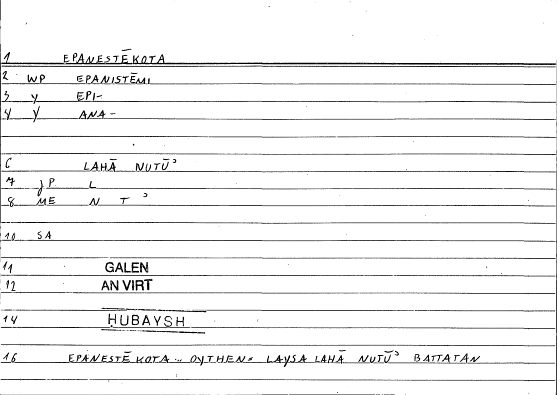 1 EPANESTĒKOTA
2 WP EPANISTĒMI
3 y EPI-
4 y ANA-
6 LAHĀ NUTŪʾ
7 jP L
8 ME N T ʾ
10 SA
11 GALEN
12 AN VIRT
14 ḤUBAYSH
16 EPANESTĒKOTA .. OYTHEN= LAYSA LAHĀ NUTŪʾ BATTATAN